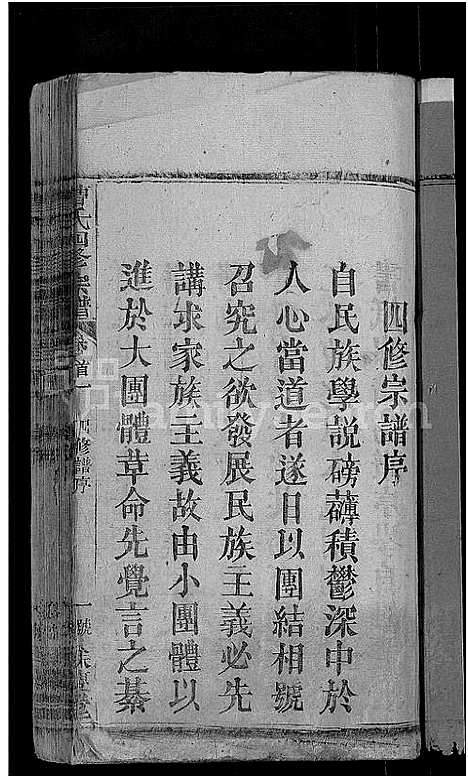 四修宗譜序
自民族學說磅礴積鬱深中於
人心當道者遂日以團結相號
召究之欲發展民族主義必先
講求家族主義故由小團體以
進於大團體革命先覺言之綦
曹氏四修宗譜 卷首一 四修譜序 一號